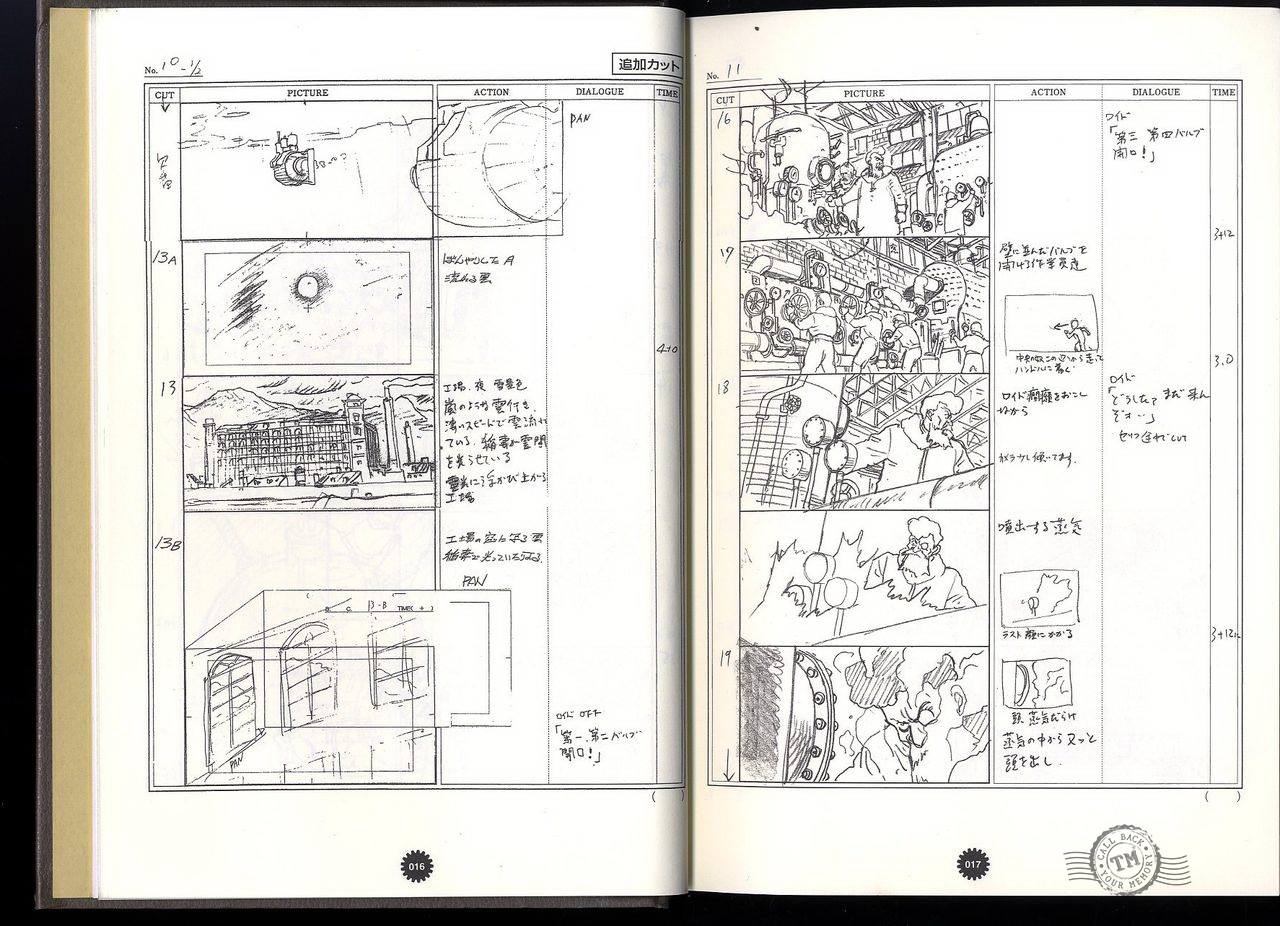 No. 10-1/2
追加カット
CUT
PICTURE
ACTION
DIALOGUE
TIME
PAN
13A
ぼんやりした月
流れる雲
4+0
13
工場、夜 雪景色
嵐のような雲行き
スピードで雲流れ
ている。稲妻が雲間
を光らせている
雷光に浮かび上がる
工場
13B
工場の窓に
稲妻で光っている
PAN
13-B
TIME( + )
PAN
ロイド OFF
「第一、第二バルブ
開口!」
( )
016
No. 11
CUT
PICTURE
ACTION
DIALOGUE
TIME
16
ロイド
「第三 第四バルブ
開口!」
3+12
17
壁に並んだバルブを
開ける作業員達
ハンドルに着く
3.0
18
ロイド癇癪をおこし
ながら
ロイド
「どうした? まだ来ん
ぞォ…」
噴出する蒸気
ラスト 顔にかかる
3+12
19
蒸気だらけ
蒸気の中からヌッと
頭を出し
( )
017
CALL BACK
TM
YOUR MEMORY